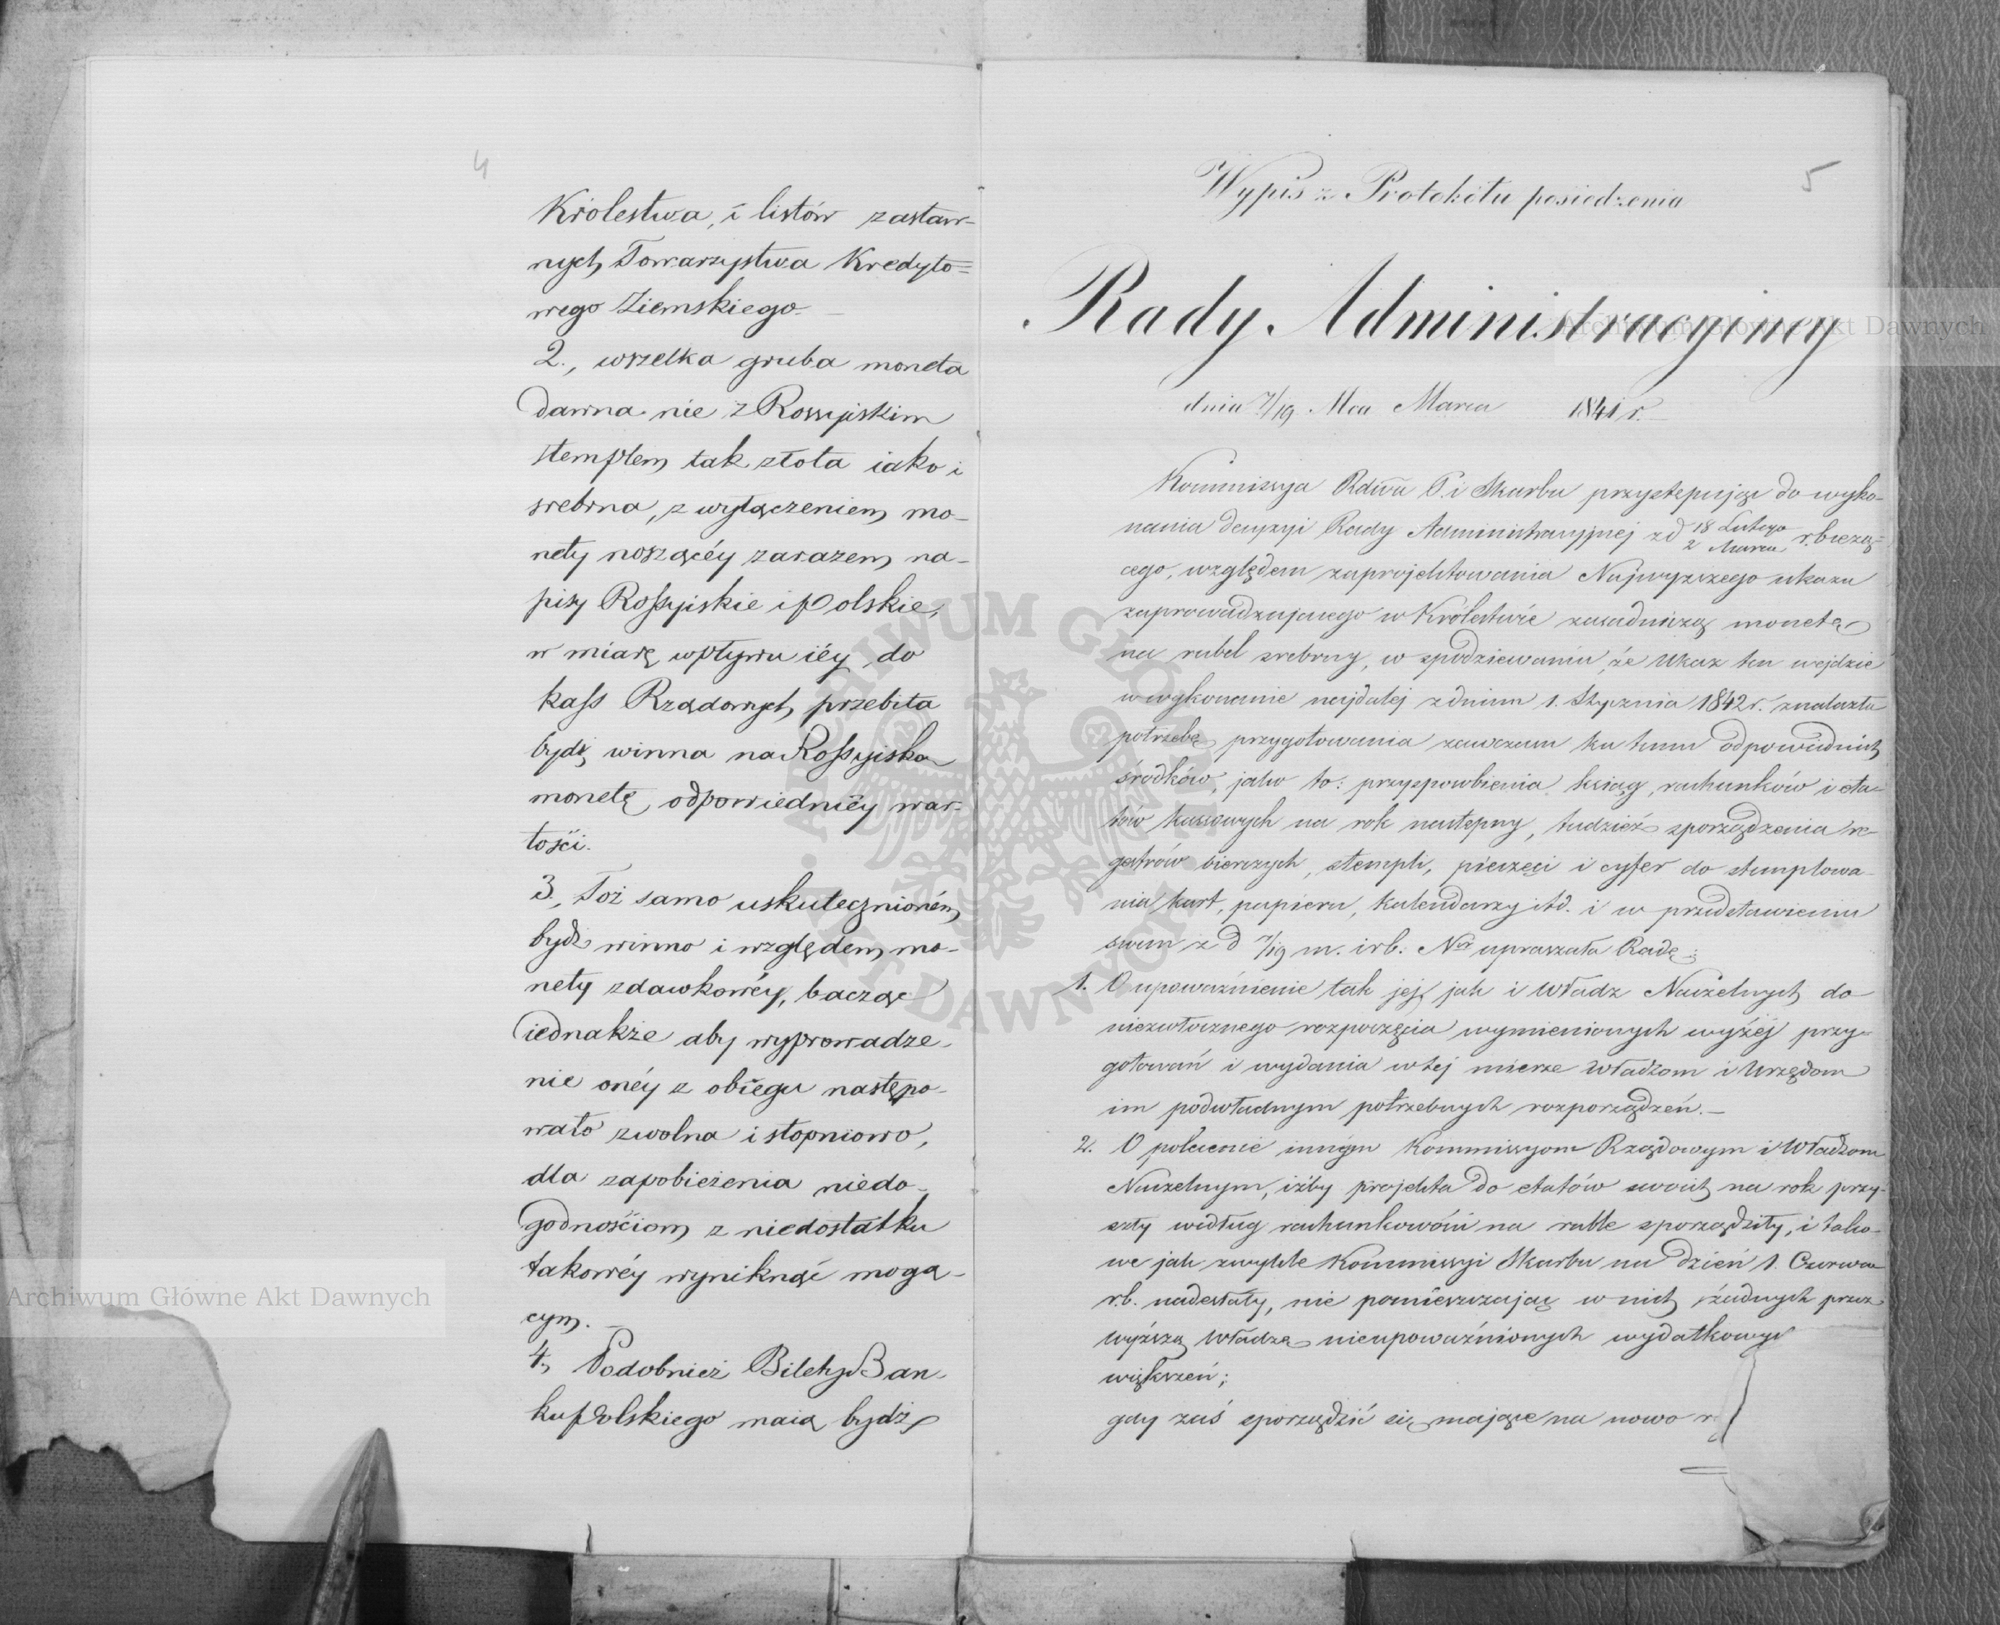 4
Królestwa, i listów zastaw-
nych Towarzystwa Kredyto=
wego Ziemskiego. —
2., wszelka gruba moneta
dawna nie z Rossyiskim
stemplem tak złota iako i
srebrna, z wyłączeniem mo-
nety noszącéy zarazem na-
pisy Rossyiskie i polskie,
w miarę wpływu iéy do
kass Rządowych przebita
bydź winna na Rossyiską
monetę, odpowiednićy war-
tości.
3., Toż samo uskutecznioném
bydź winno i względem mo-
nety zdawkowéy, bacząc
iednakże aby wyprowadze-
nie onéy z obiegu następo-
wało zwolna i stopniowo,
dla zapobieżenia niedo-
godnościom z niedostatku
takowéy wyniknąć mogą-
cym. —
4., Podobnież Bilety Ban-
ku polskiego maią bydź
5
Wypis z Protokółu posiedzenia
Rady Administracyjney
dnia 7/19 Mca Marca 1841 r.
Kommissya Rdwa P. i Skarbu przystępując do wyko-
nania decyzyi Rady Administracyjnej z d 18 Lutego / 2 Marca r. bieżą-
cego, względem zaprojektowania Najwyższego ukazu
zaprowadzającego w Królestwie zasadniczą monetę
na rubel srebrny, w spodziewaniu, że Ukaz ten wejdzie
w wykonanie najdalej z dniem 1. Stycznia 1842 r. znalazła
potrzebę przygotowania zawczasu ku temu odpowiednich
środków, jako to: przysposobienia ksiąg, rachunków i eta-
tów kassowych na rok następny, tudzież sporządzenia re-
gestrów bierczych, stempli, pieczęci i cyfer do stemplowa-
nia kart, papieru, kalendarzy itd. i w przedstawieniu
swem z d 7/19 m. i r. b. Nr upraszała Radę:
1. O upoważnienie tak jej, jak i Władz Naczelnych do
niezwłocznego rozpoczęcia wymienionych wyżéj przy-
gotowań i wydania w téj mierze Władzom i Urzędom
im podwładnym potrzebnych rozporządzeń. —
2. O polecenie innym Kommissyom Rządowym i Władzom
Naczelnym, iżby projekta do etatów swoich na rok przy-
szły według rachunkowości na ruble sporządziły, i tako-
we jak zwykle Kommissyi Skarbu na dzień 1. Czerwca
r.b. nadesłały, nie pomieszczając w nich żadnych przez
wyższą Władzę nieupoważnionych wydatkowyc
większeń;
gdy zaś sporządzić się mające na nowo r
Archiwum Główne Akt Dawnych
Archiwum Główne Akt Dawnych
ARCHIWUM GŁÓWNE AKT DAWNYCH